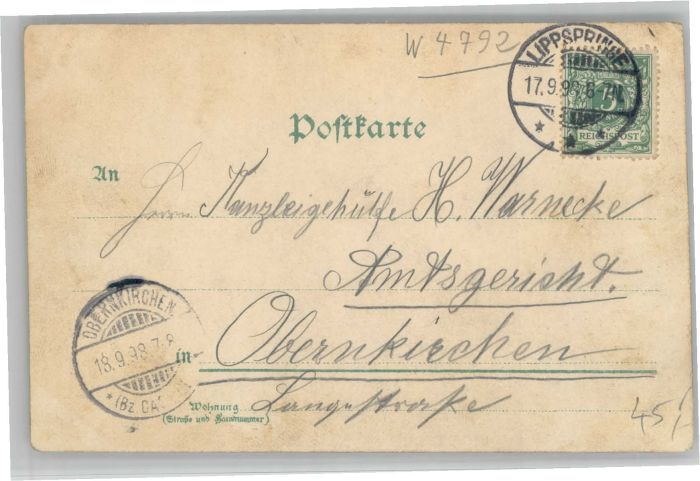 W 4792
LIPPSPRINGE
17.9.98.6-7N.
5
REICHSPOST
Postkarte
An
Herrn Kanzleigehülfe H. Warnecke
Amtsgericht.
OBERNKIRCHEN
18.9.98.7-8
* (Bz CAS
in Obernkirchen
Wohnung
(Straße und Hausnummer)
Langestraße
45,-